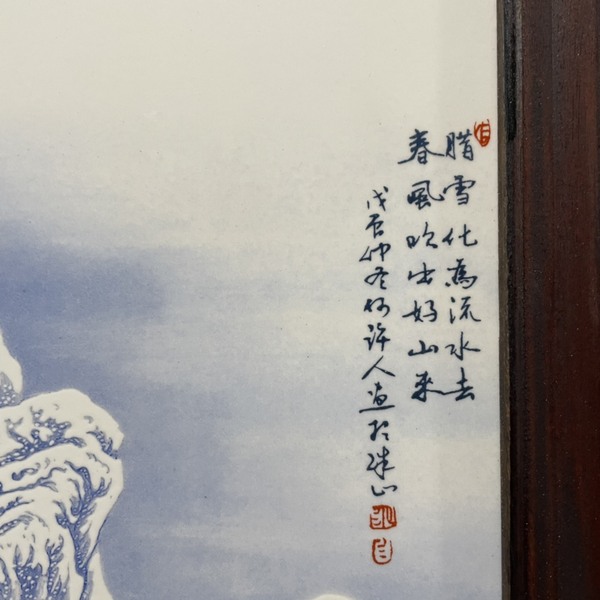 腊雪化為流水去
春風吹出好山來
戊辰仲冬何許人畫於珠山